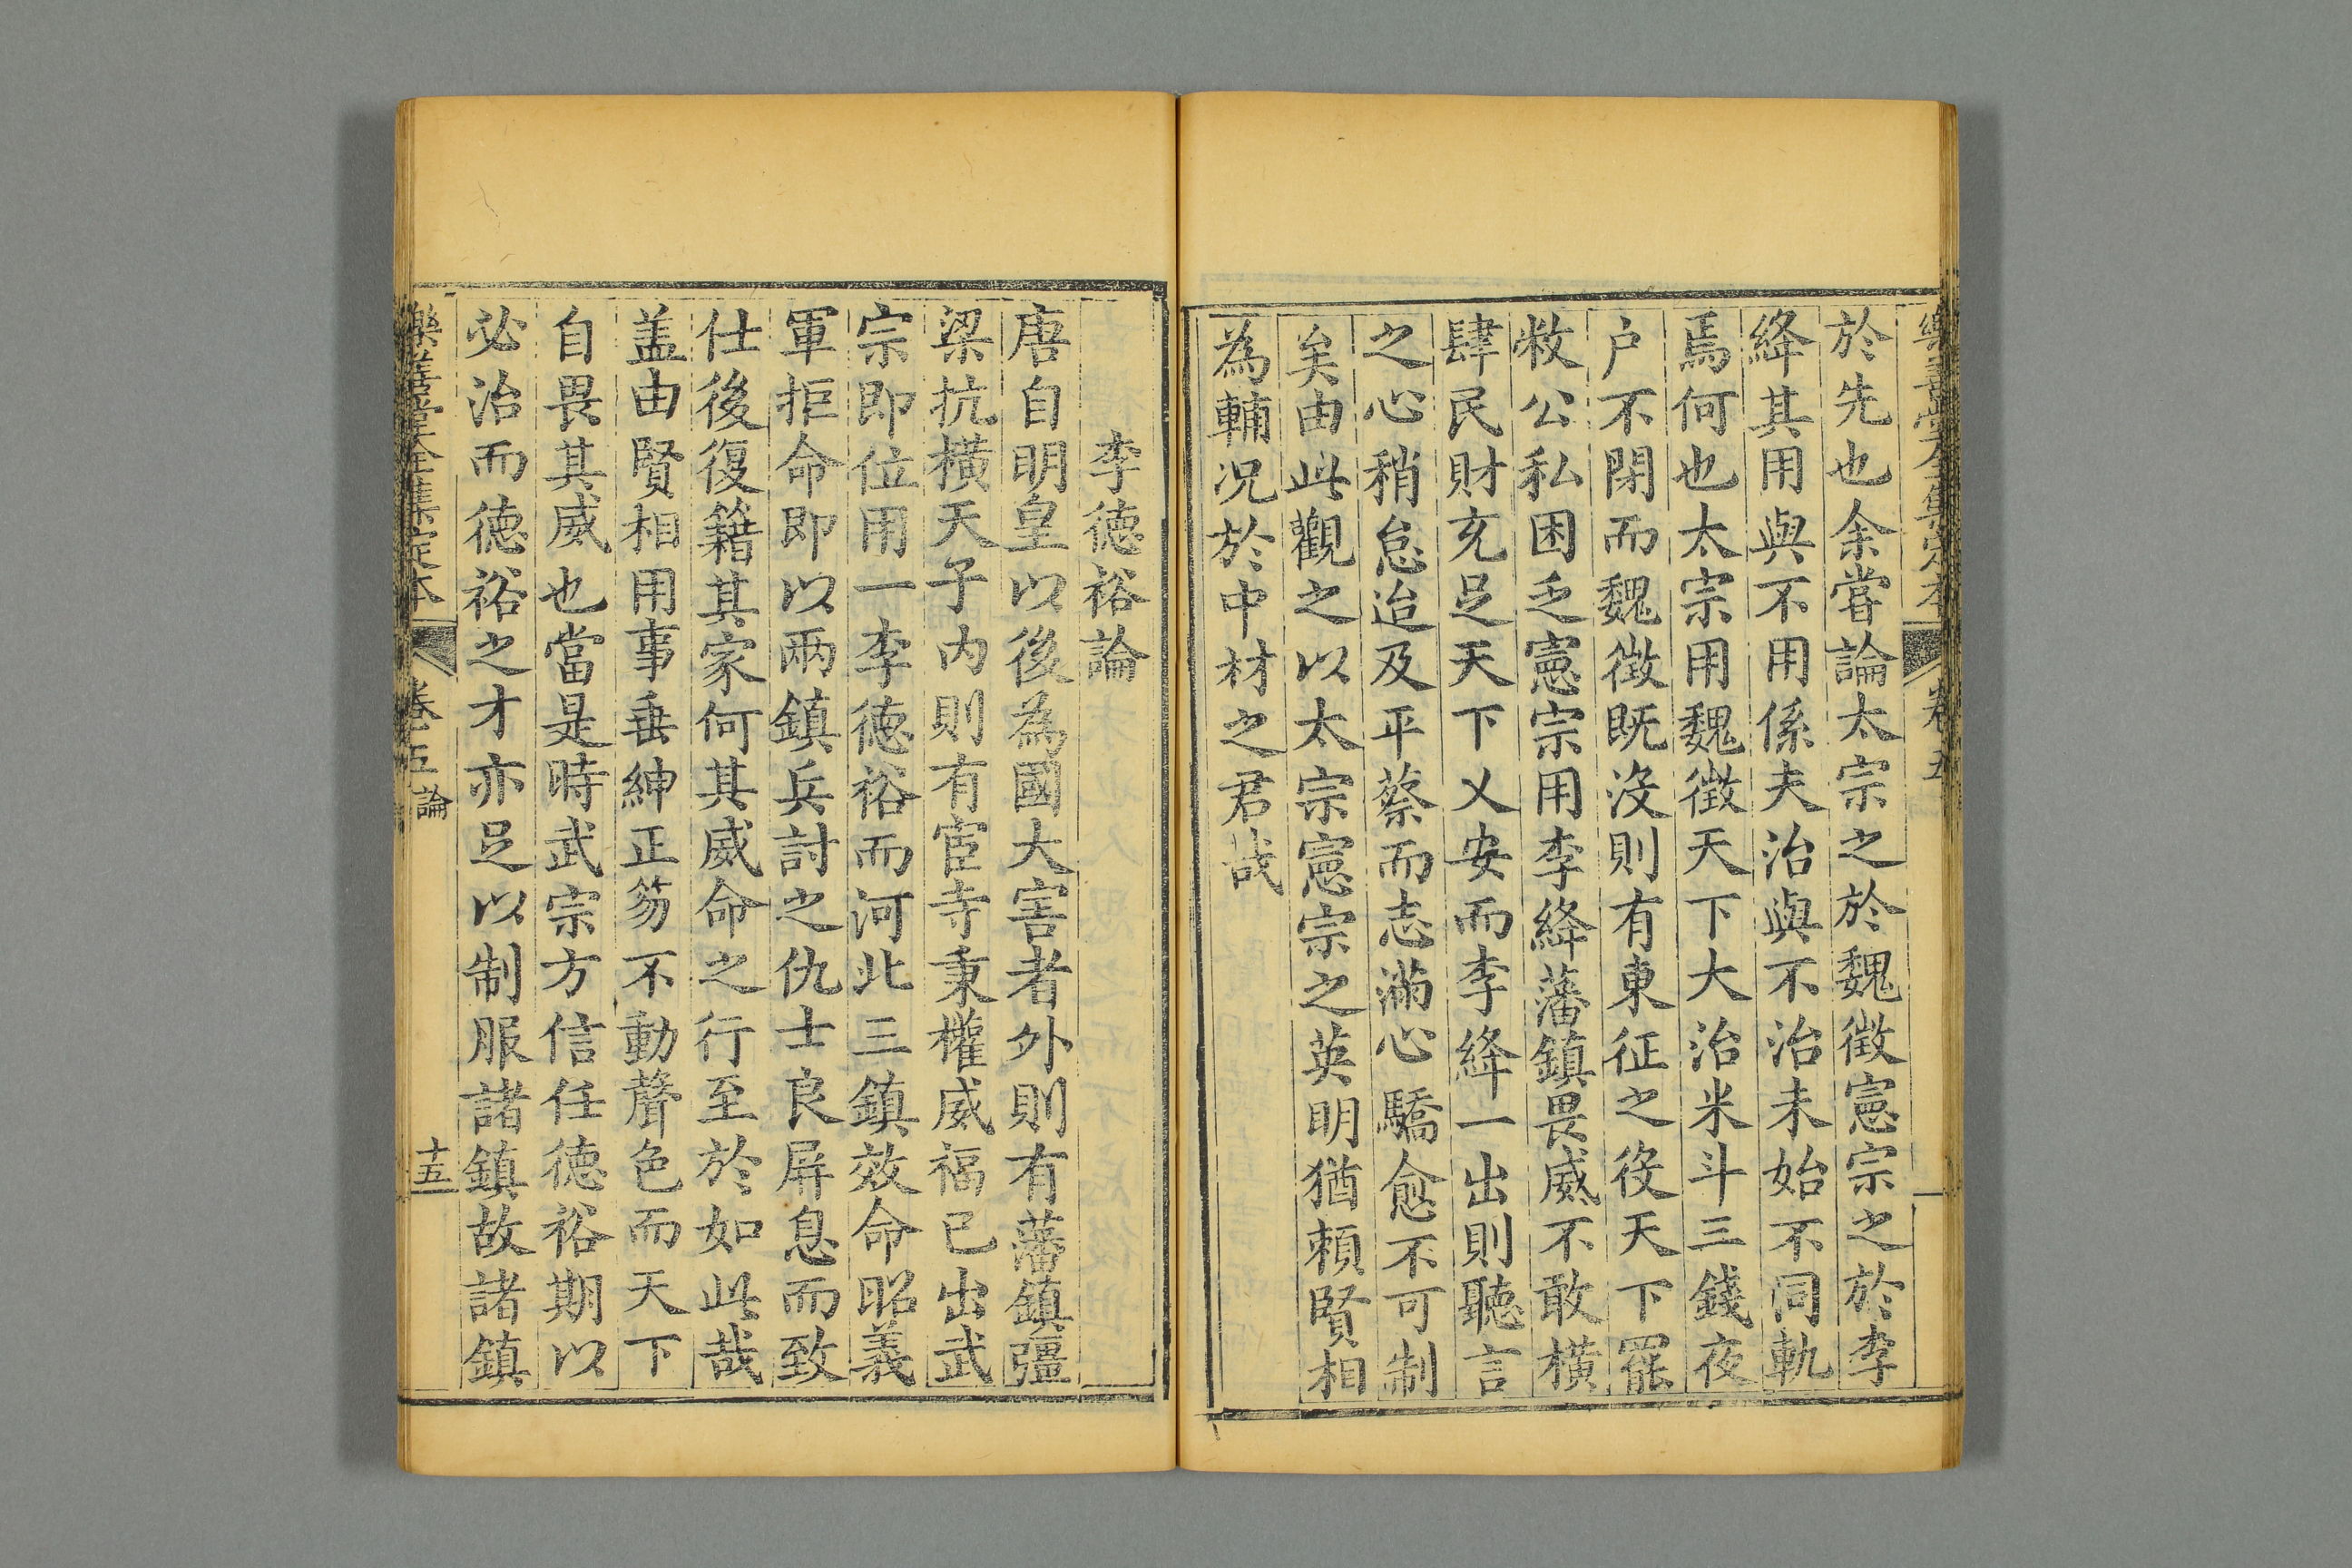 樂善堂全集定本 卷五
於先也余嘗論太宗之於魏徵憲宗之於李
絳其用與不用係夫治與不治未始不同軌
焉何也太宗用魏徵天下大治米斗三錢夜
户不閉而魏徵既沒則有東征之役天下罷
敝公私困乏憲宗用李絳藩鎮畏威不敢橫
肆民財充足天下乂安而李絳一出則聽言
之心稍怠迨及平蔡而志滿心驕愈不可制
矣由此觀之以太宗憲宗之英明猶頼賢相
為輔况於中材之君哉
李徳裕論
唐自明皇以後為國大害者外則有藩鎮彊
梁抗橫天子内則有宦寺秉權威福已出武
宗即位用一李徳裕而河北三鎮效命昭義
軍拒命即以兩鎮兵討之仇士良屏息而致
仕後復籍其家何其威命之行至於如此哉
盖由賢相用事垂紳正笏不動聲色而天下
自畏其威也當是時武宗方信任徳裕期以
必治而徳裕之才亦足以制服諸鎮故諸鎮
樂善堂全集定本 卷五 論 十五